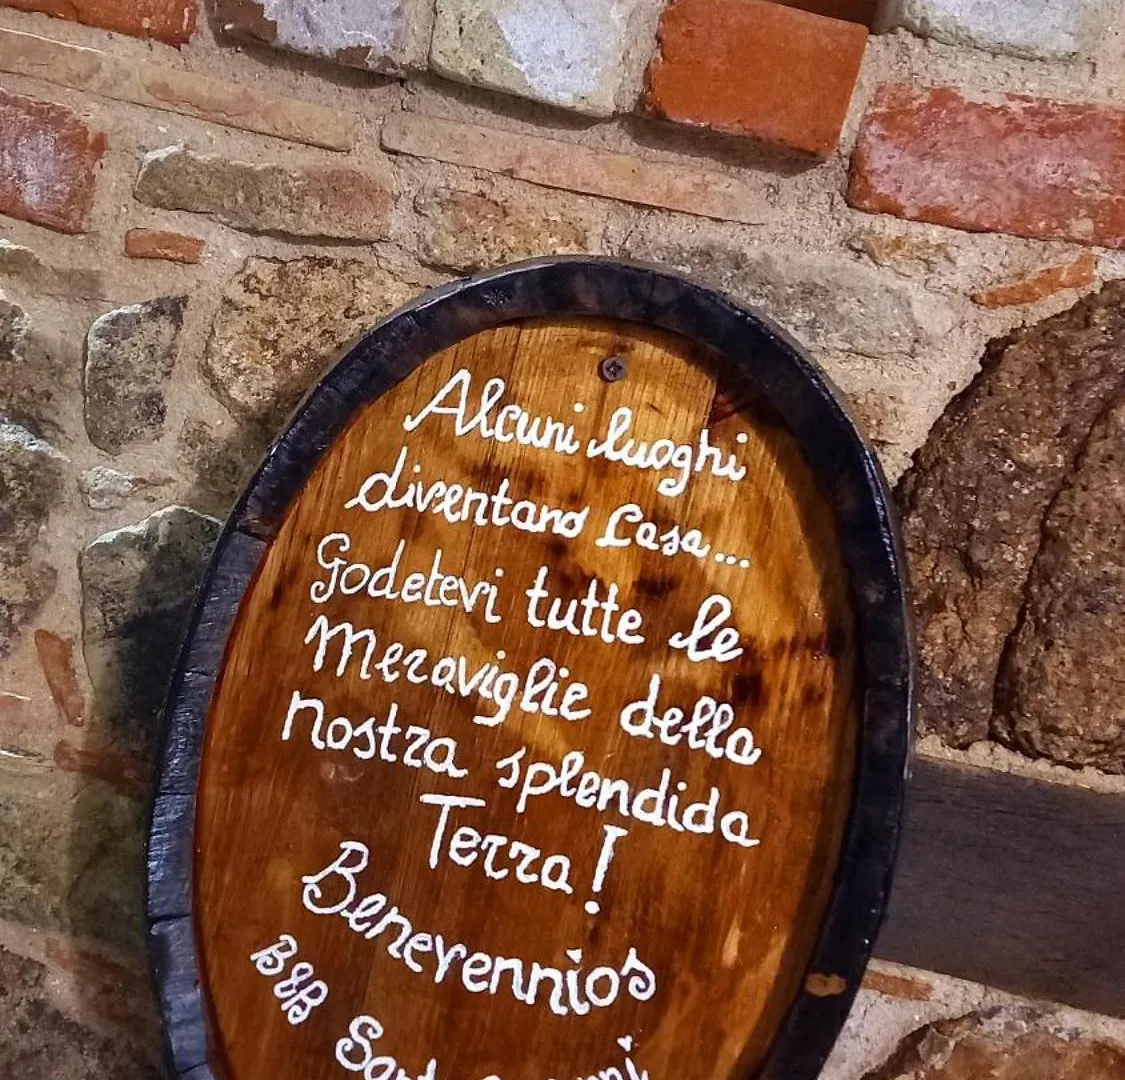 Alcuni luoghi
diventano Casa...
Godetevi tutte le
Meraviglie della
nostra splendida
Terra!
Benevennios
B&B